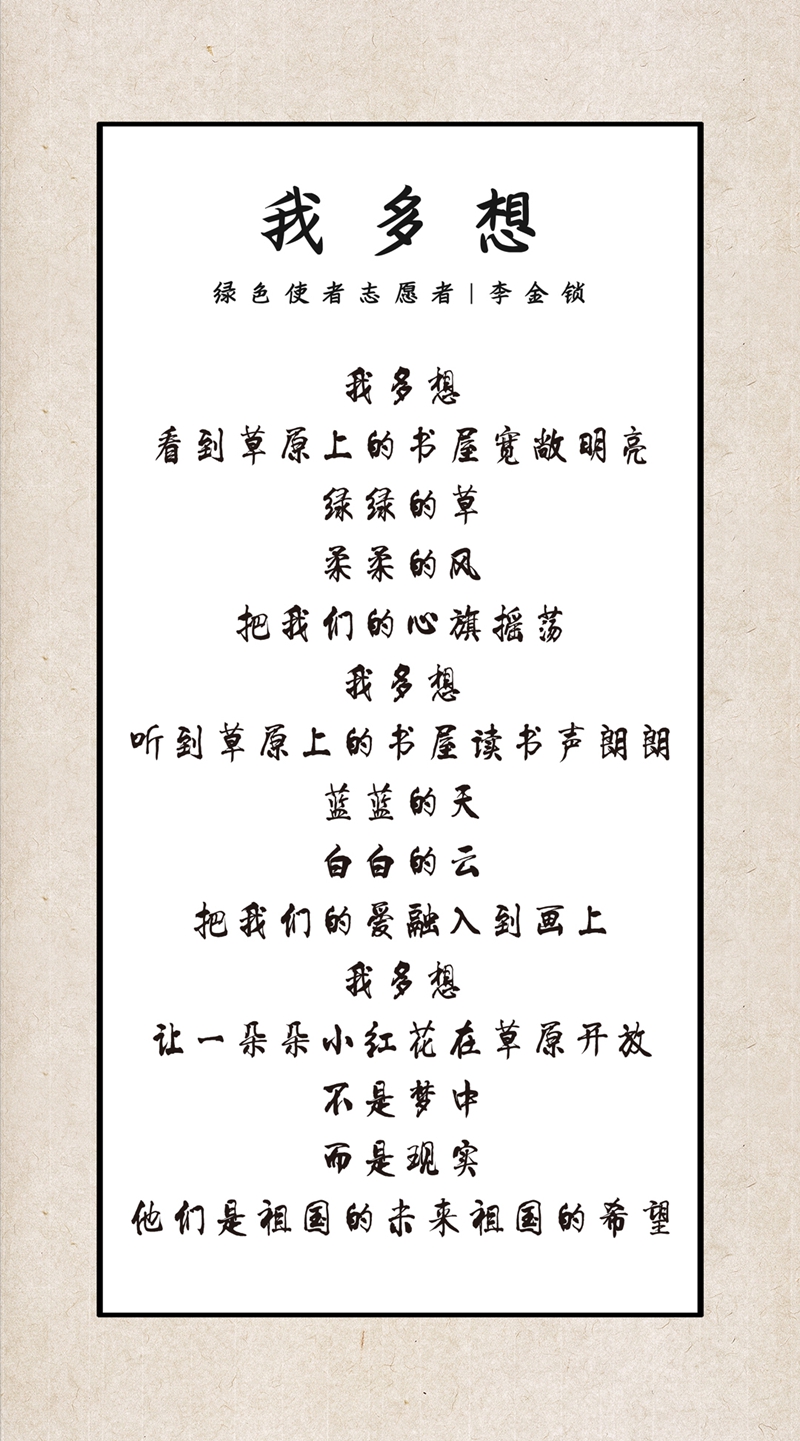 我多想
绿色使者志愿者|李金锁
我多想
看到草原上的书屋宽敞明亮
绿绿的草
柔柔的风
把我们的心旗摇荡
我多想
听到草原上的书屋读书声朗朗
蓝蓝的天
白白的云
把我们的爱融入到画上
我多想
让一朵朵小红花在草原开放
不是梦中
而是现实
他们是祖国的未来祖国的希望